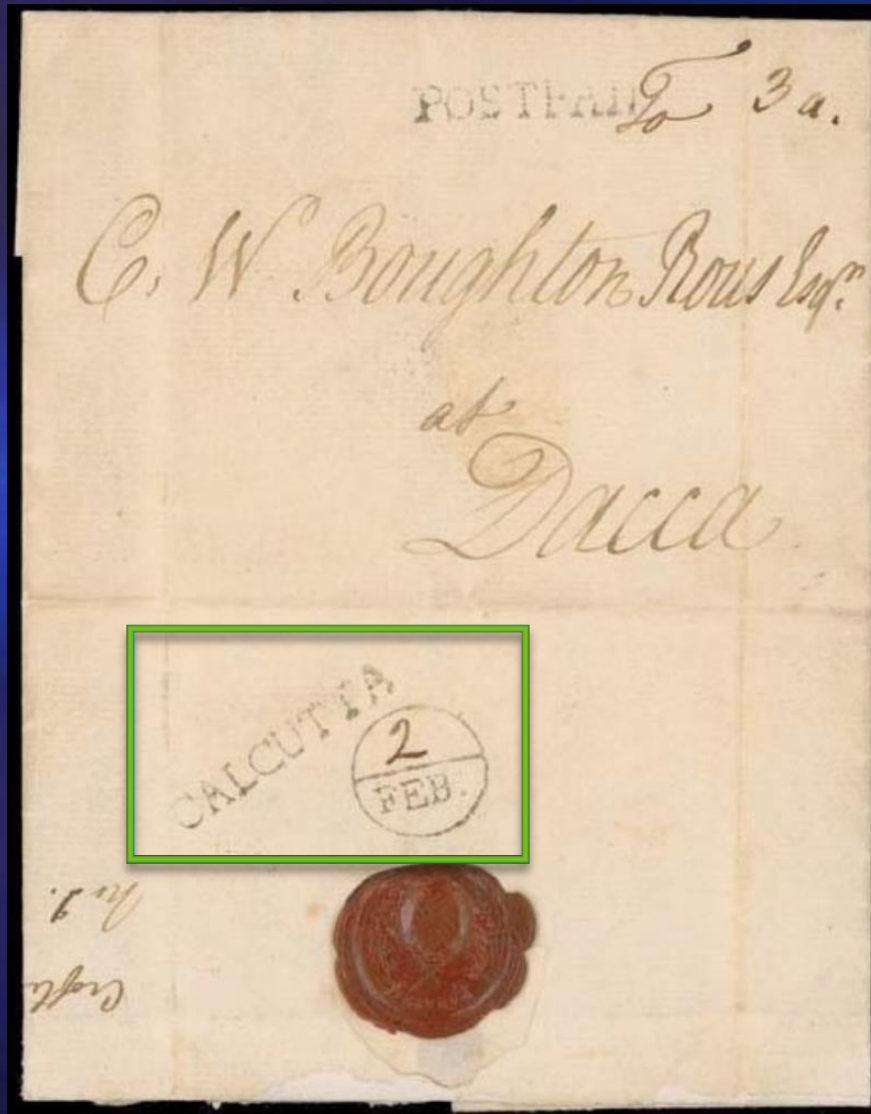 POSTPAID 3 a.
To
C. W. Boughton Rous Esqr.
at
Dacca
CALCUTTA
2
FEB.